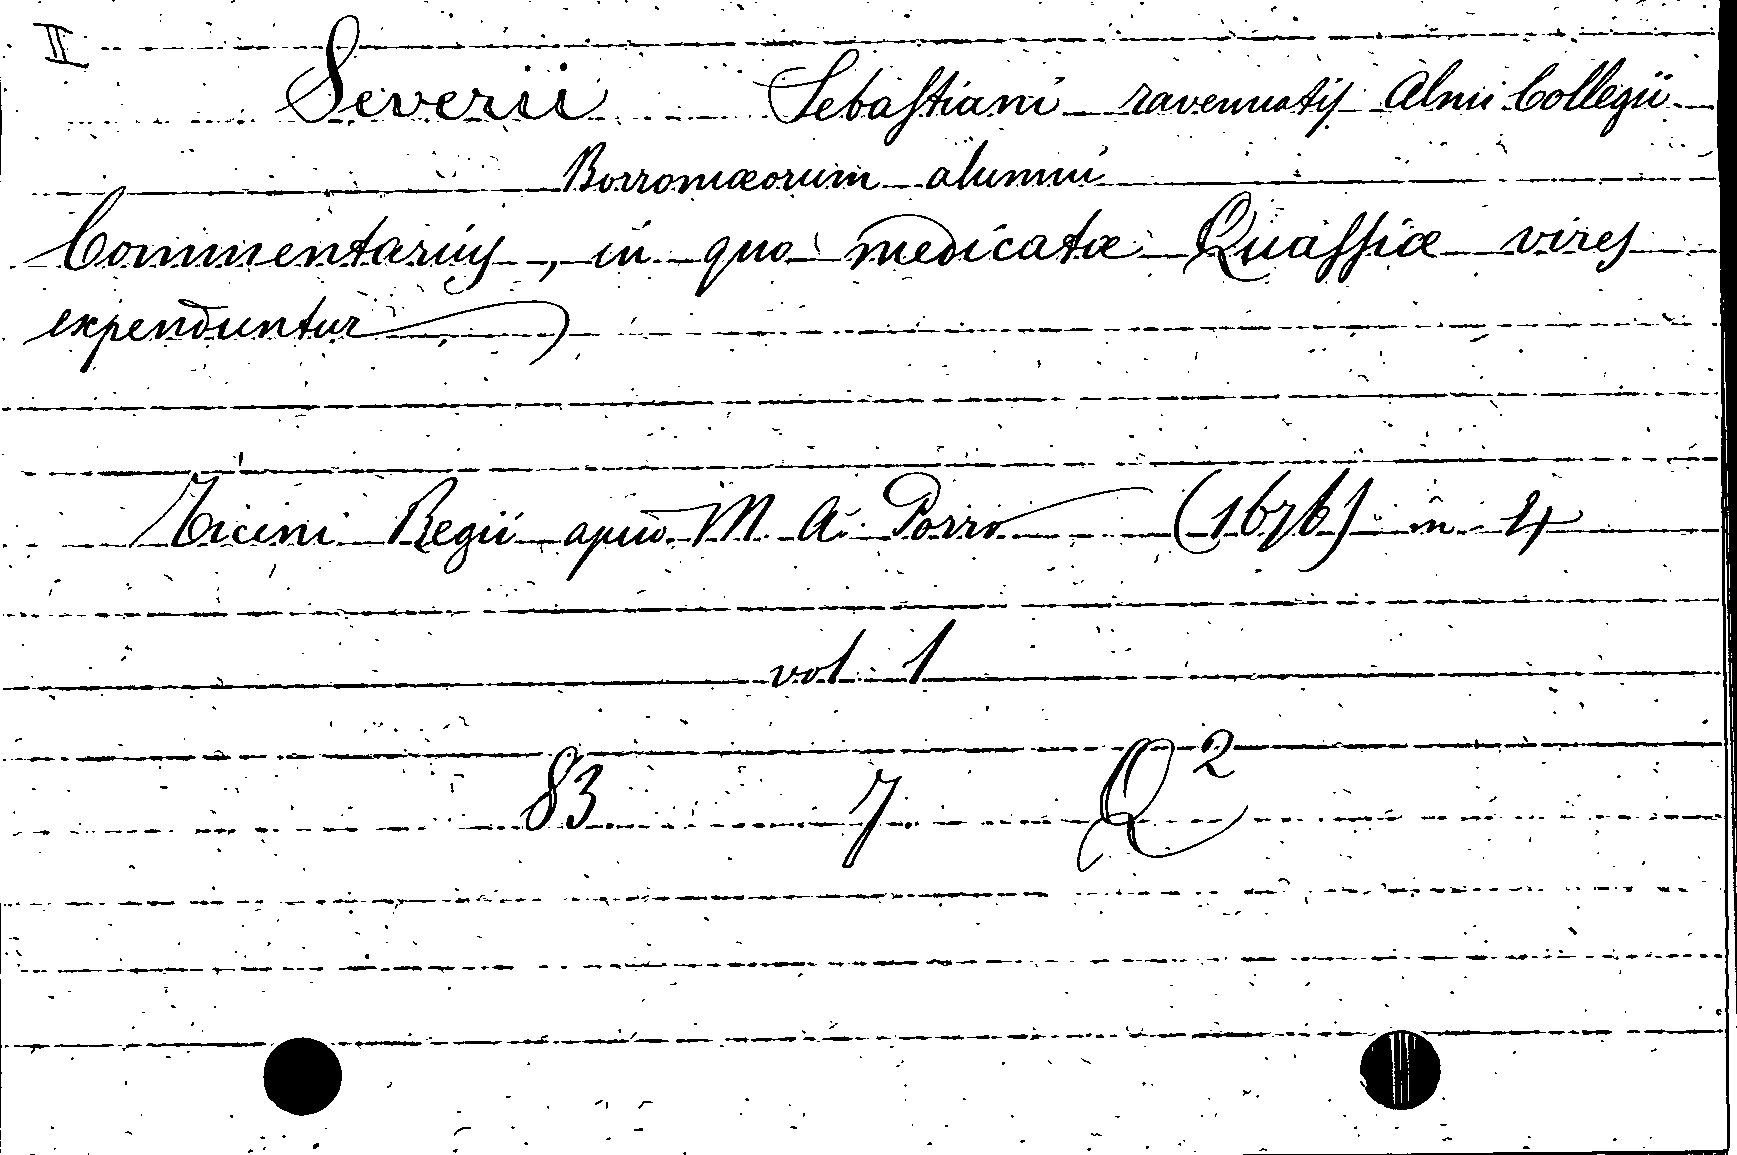 II
Severii Sebastiani ravennatis Almi Collegii
Borromæorum alumni
Commentarius, in quo medicatæ Quassiæ vires
expenduntur
Ticini Regii apud M. A. Porro (1676) in 4
vol. 1
83 7 Q²